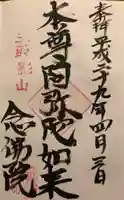 奉拝平成二十九年四月三日
本尊阿弥陀如来
念佛院